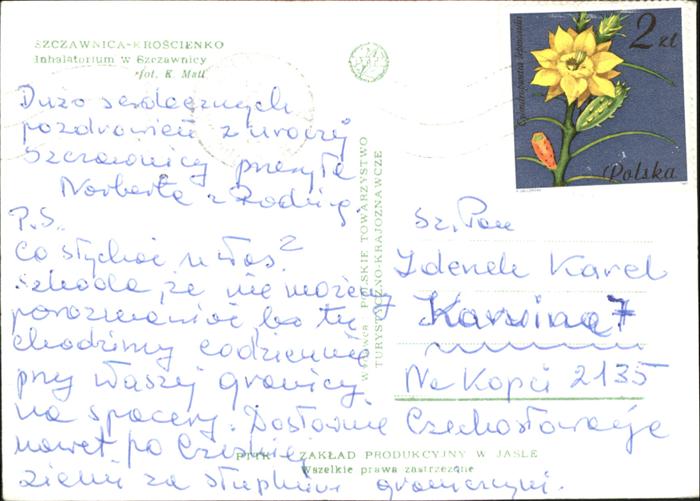 SZCZAWNICA-KROŚCIENKO
Inhalatorium w Szczawnicy
fot. K. Mall
2 zł
Polska
Dużo serdecznych
pozdrowień z uroczej
Szczawnicy przesyła
Norberta z Rodziną.
P.S.
Co słychać u Was?
Szkoda, że nie możemy
porozmawiać bo tu
chodzimy codziennie
przy Waszej granicy
na spacery. Dosłownie
nawet po Czeskiej
ziemi za słupkami granicznymi.
Wydawca: POLSKIE TOWARZYSTWO
TURYSTYCZNO-KRAJOZNAWCZE
Sz. Pan
Zdenek Karel
Karvina 7
Na Kopci 2135
Czechosłowacja
PTTK ZAKŁAD PRODUKCYJNY W JAŚLE
Wszelkie prawa zastrzeżone